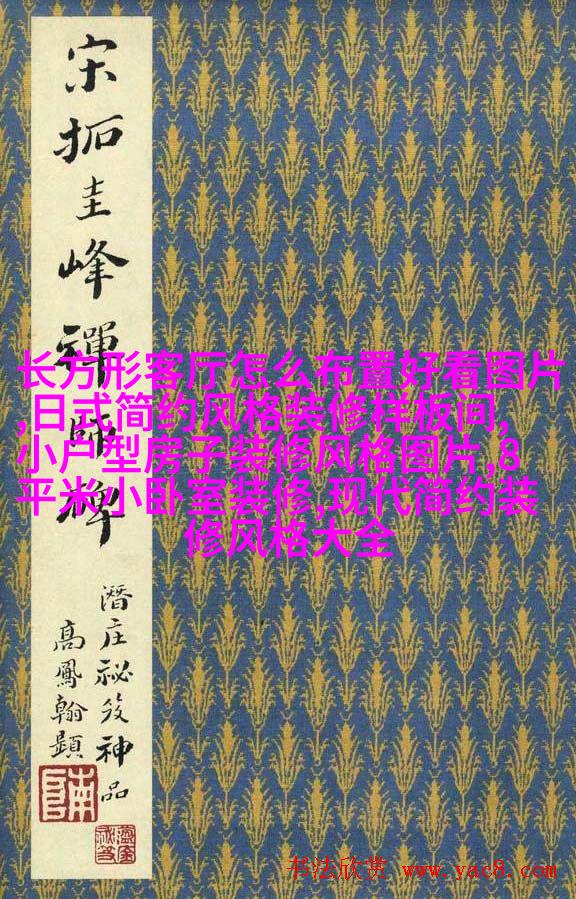 宋拓圭峰禪師碑
潛庄祕笈神品
高鳳翰題
长方形客厅怎么布置好看图片
,日式简约风格装修样板间,
小户型房子装修风格图片,8
平米小卧室装修,现代简约装
修风格大全
书法欣赏 www.yac8.com